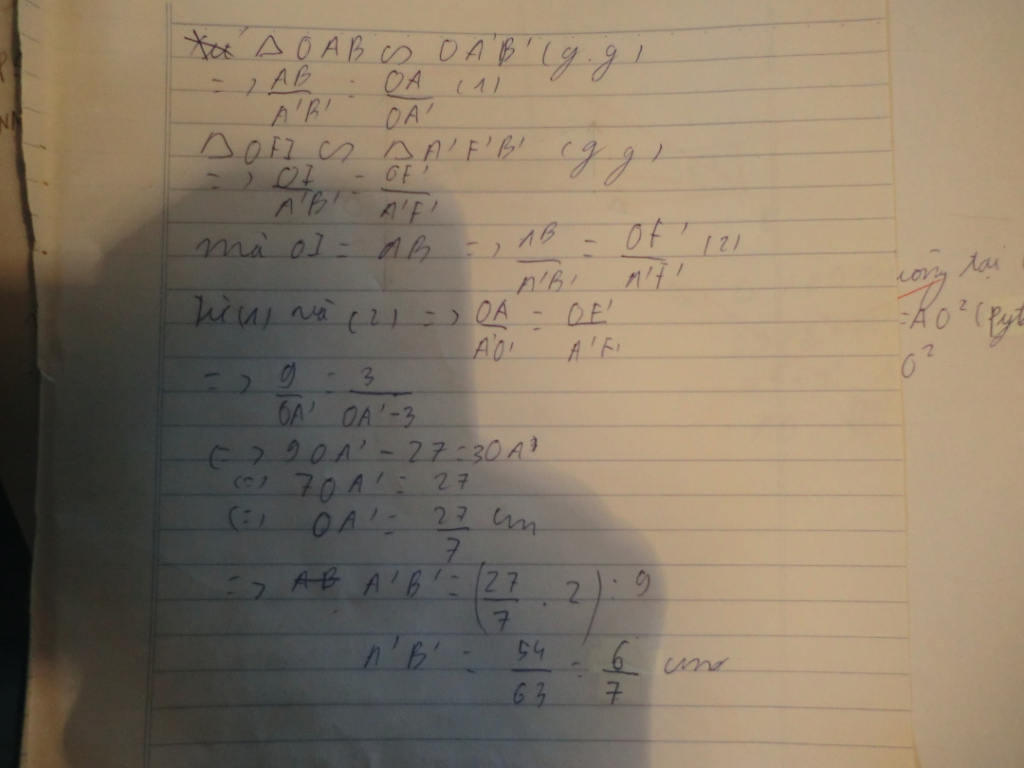 Δ OAB ∽ OA'B' (g.g)
=> AB/A'B' = OA/OA' (1)
Δ OFI ∽ Δ A'F'B' (g g)
=> OI/A'B' = OF'/A'F'
mà OI = AB => AB/A'B' = OF'/A'F' (2)
từ (1) và (2) => OA/A'O' = OF'/A'F'
=> 9/OA' = 3/OA'-3
(=> 9OA' - 27 = 3OA'
(=> 7OA' = 27
(=> OA' = 27/7 cm
=> AB A'B' = (27/7 . 2) : 9
A'B' = 54/63 = 6/7 cm
tại
=AO² (Pyt
O²